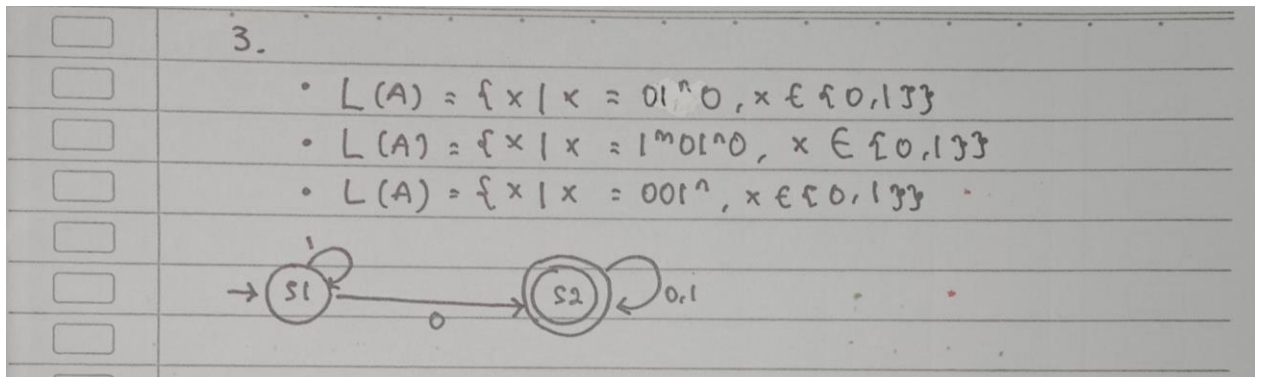 3.
• L(A) = {x | x = 01ⁿ0, x ∈ {0,1}}
• L(A) = {x | x = 1ᵐ01ⁿ0, x ∈ {0,1}}
• L(A) = {x | x = 001ⁿ, x ∈ {0,1}}
1
S1 S2 0,1
0